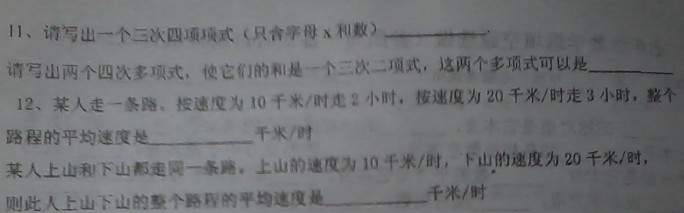 11、请写出一个三次四项项式（只含字母 x 和数）__________.
请写出两个四次多项式，使它们的和是一个三次二项式，这两个多项式可以是________
12、某人走一条路。按速度为 10 千米/时走 2 小时，按速度为 20 千米/时走 3 小时，整个
路程的平均速度是__________千米/时
某人上山和下山都走同一条路。上山的速度为 10 千米/时，下山的速度为 20 千米/时，
则此人上山下山的整个路程的平均速度是__________千米/时